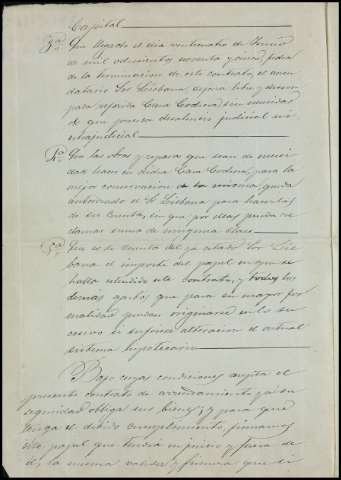 Capital
3ª Que llegado el dia veinticuatro de Junio
de mil ochocientos noventa y cinco, fecha
de la terminacion de este contrato, el arren
datario Sor Lisbona, dejará libre y desem
para referida Casa Codina, sin necesidad
de que preceda desahucio judicial ni
extrajudicial
4ª Que las obras y reparos que sean de necesi
dad hacer en dicha Casa Codina, para la
mejor conservacion de la misma, queda
autorizado el Sr Lisbona para hacerlas
de su Cuenta, sin que por ellas pueda re
clamar suma de ninguna clase
5ª Que es de cuenta del ya citado Sor Lis
bona el importe del papel en que se
halla estendido este contrato, y todos los
demás gastos que para su mayor for
malidad puedan originarse en lo su
cesivo si sufriese alteracion el actual
sistema hipotecario
Bajo cuyas condiciones sujeta el
presente contrato de arrendamiento y á su
seguridad obliga sus bienes; y para que
tenga el debido cumplimiento, firmamos
este papel que tendrá en juicio y fuera de
él, la misma validez y firmeza que si